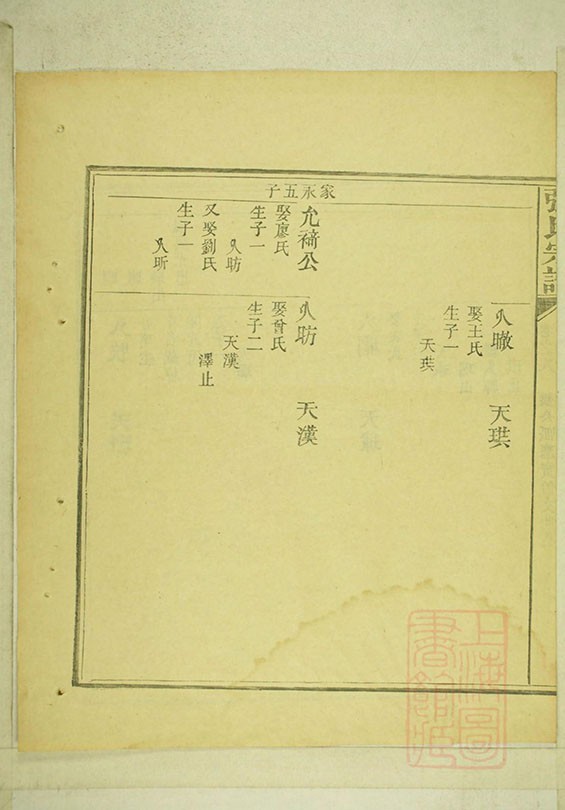 張氏宗譜
娶王氏
生子一
天珙
天珙
家永五子
允公
娶廖氏
生子一
昉
又娶劉氏
生子一
昕
昉
娶曾氏
生子二
天漢
澤止
天漢
上海圖書館藏